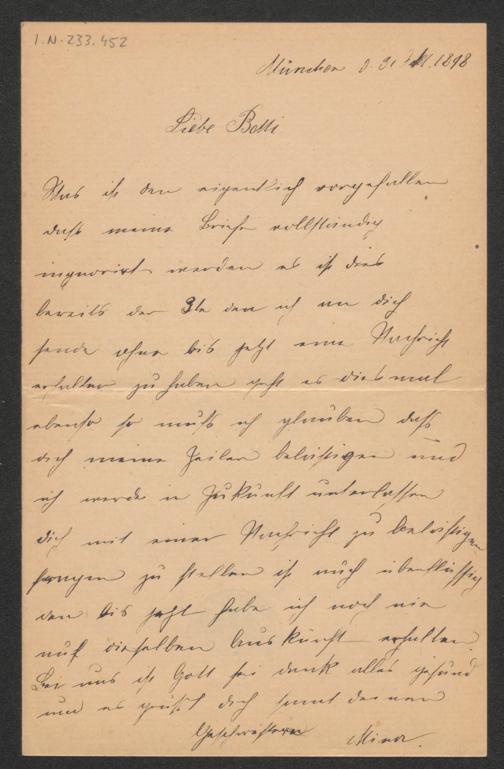 I.N. 233.452
München d. 31 1898
Liebe Betti
Was ist den eigentlich vorgefallen
daß meine Briefe vollständig
ingnorirt werden es ist dies
bereits der 3te den ich an dich
sende ohne bis jetzt eine Nachricht
erhalten zu haben geht es diesmal
ebenso so muß ich glauben daß
dich meine Zeilen belästigen und
ich werde in Zukunft unterlassen
dich mit einer Nachricht zu belästigen
fragen zu stellen ist auch überflüssig
den bis jetzt habe ich noch nie
auf dieselben Auskunft erhalten.
Bei uns ist Gott sei dank alles gesund
und es grüßt dich samt deinen
Geschwistern Mina.